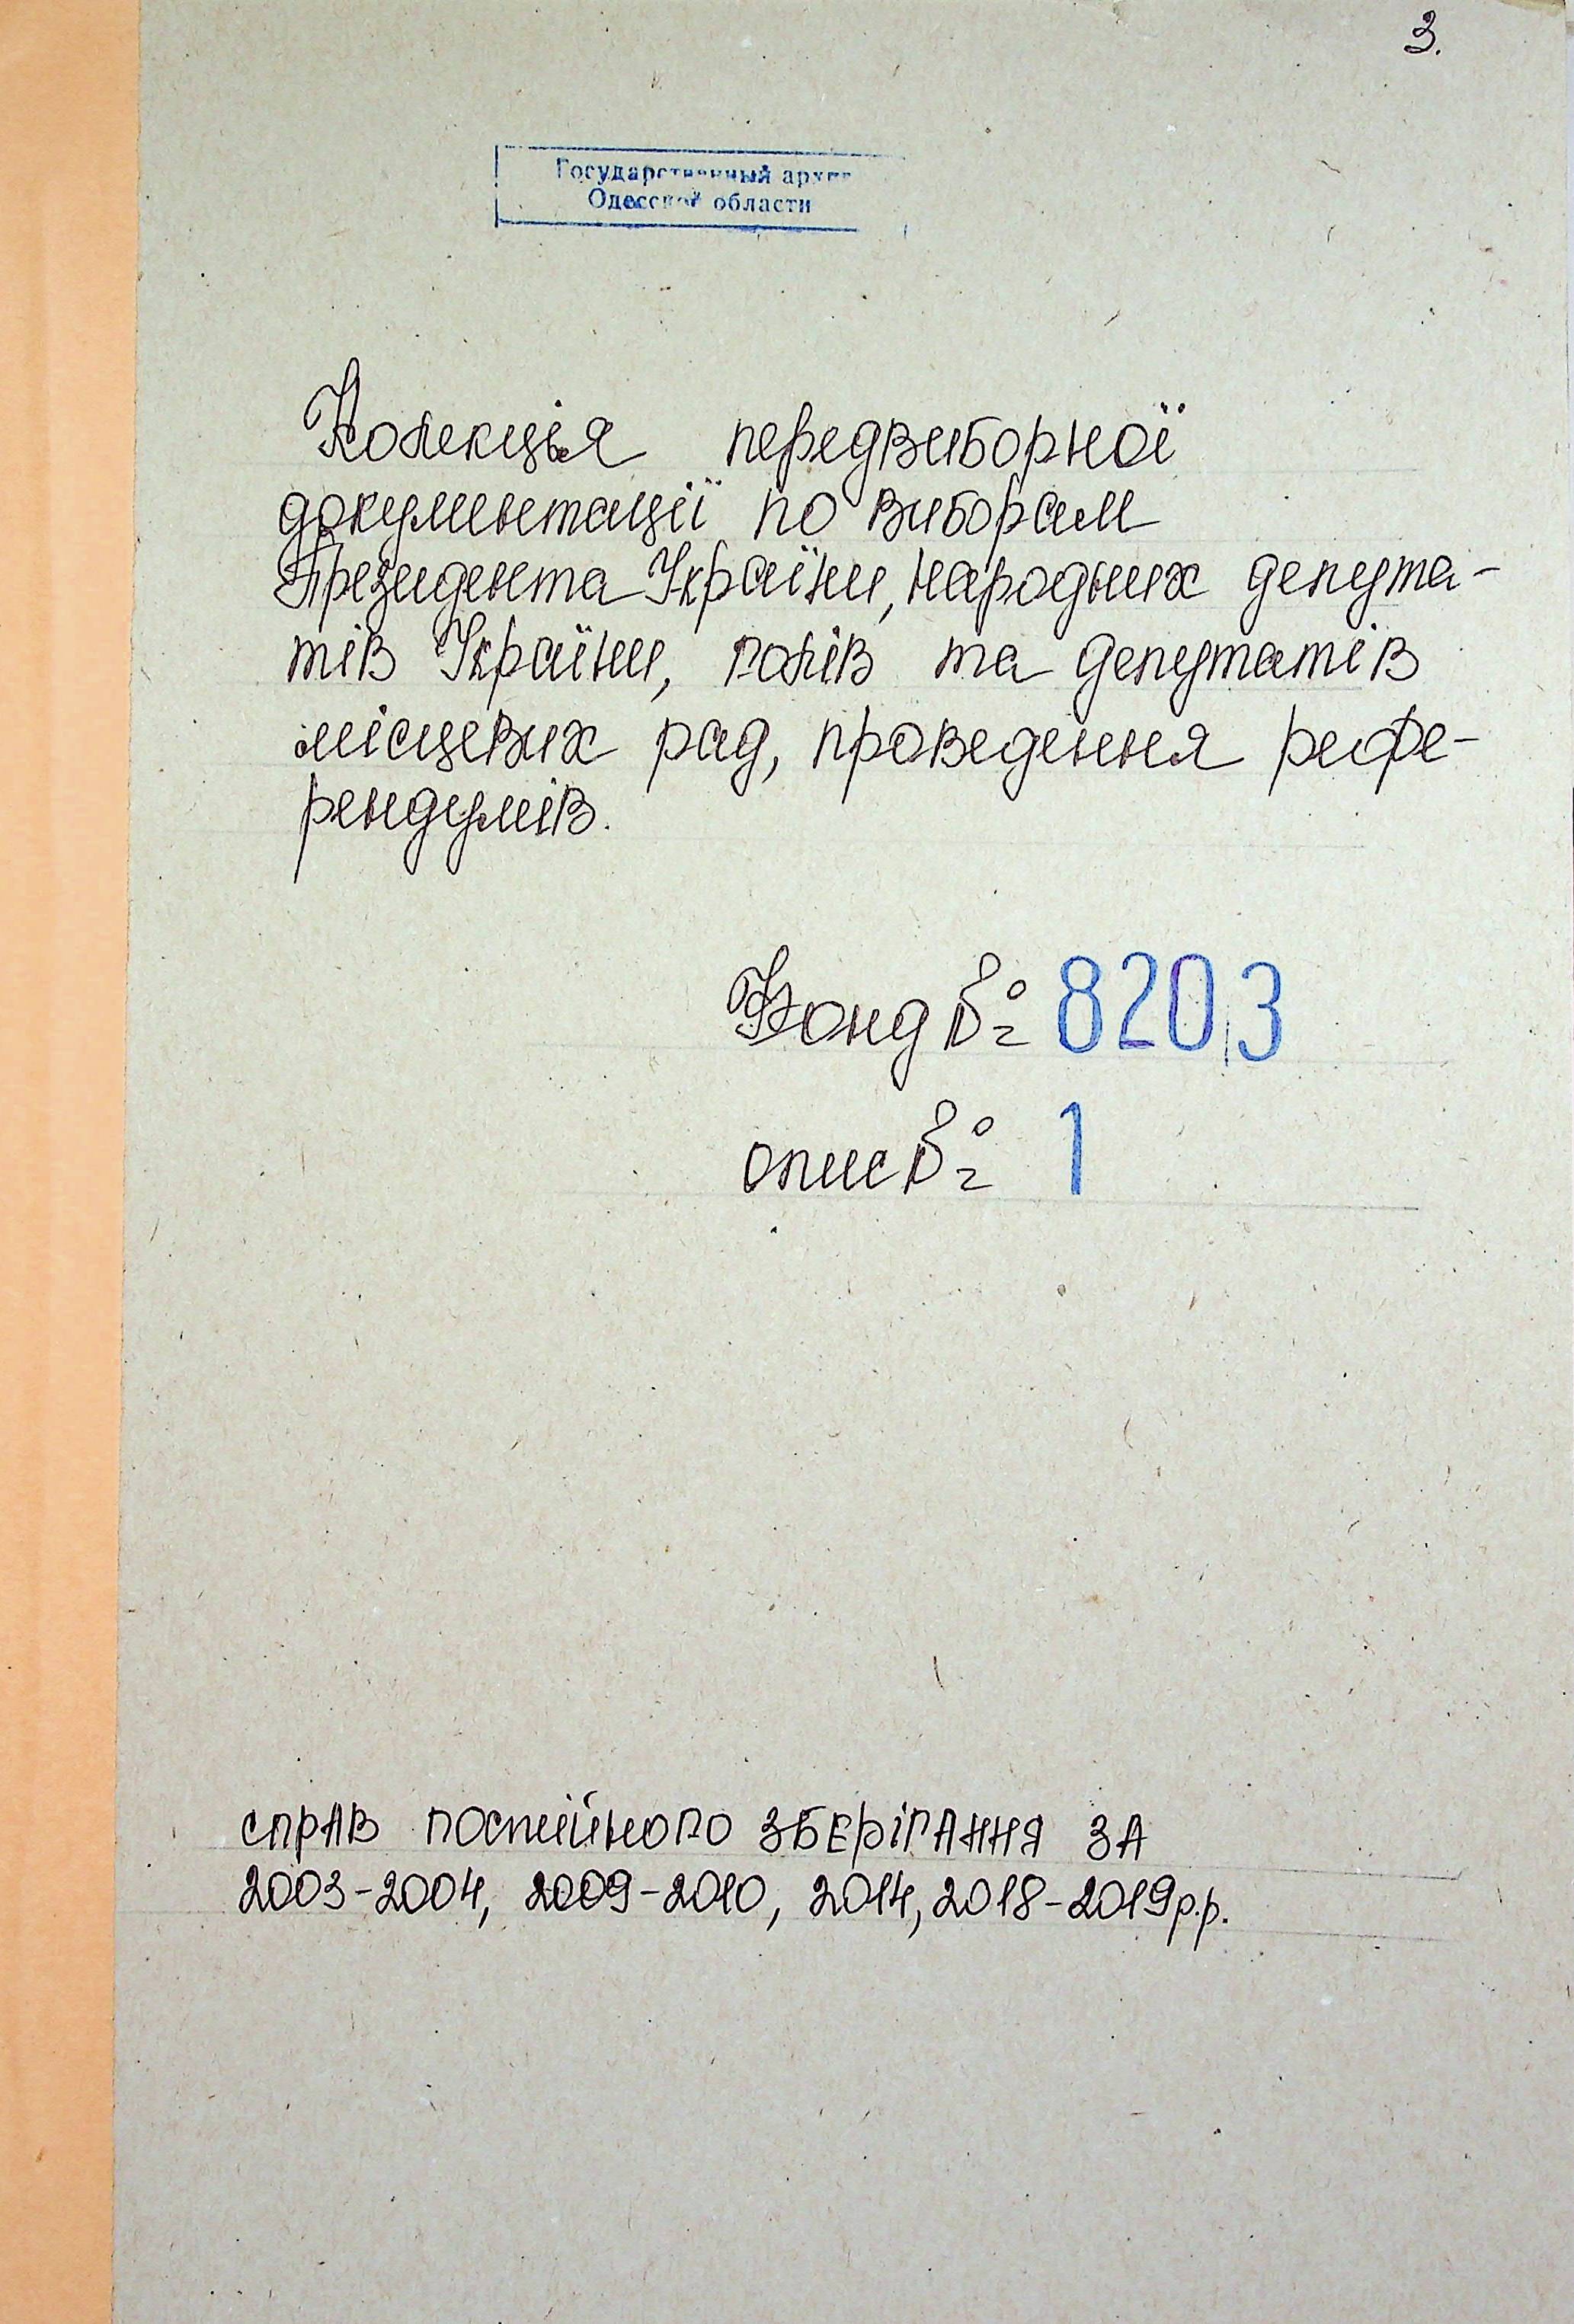 3.
Государственный архив
Одесской области
Колекція передвиборної
документації по виборам
Президента України, народних депута-
тів України, голів та депутатів
місцевих рад, проведення рефе-
рендумів.
Фонд № 8203
опис № 1
СПРАВ ПОСТІЙНОГО ЗБЕРІГАННЯ ЗА
2003-2004, 2009-2010, 2014, 2018-2019р.р.